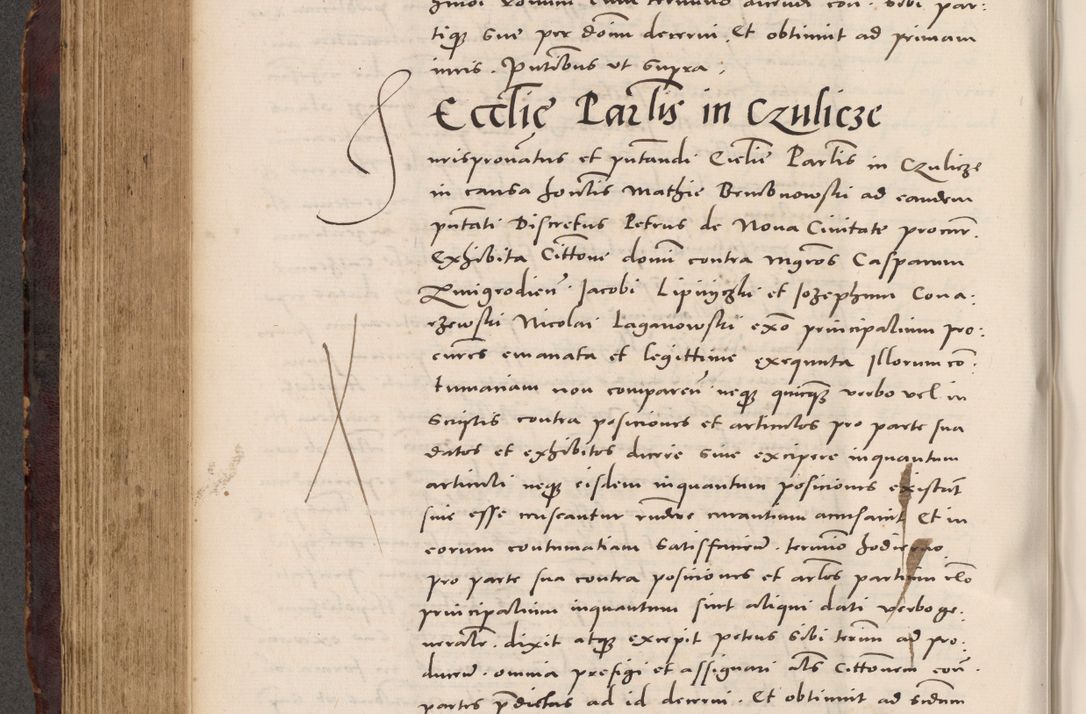 tiqȝ sue per domi decerni. Et obtinuit ad primam
iuris. Pntibus ut supra.
Ecclie Parlis in Czulicze
Jurispronatus et pntandi Ecclie Parlis in Czulicze
in causa honlis Mathie Bembnowski ad eandem
pntati Discretus Petrus de Nova Civitate procur.
Exhibita Cittone domi contra mgros Casparum
Zmigrodien. Jacobi Lipniczki et Jozephum Cona-
rzewski Nicolai Laganowski exo principalium pro:
cures emanata et legittime exequuta Illorum co
tumaciam non comparen neqȝ quicqȝ verbo vel in
scriptis contra posiciones et articulos pro parte sua
datos et exhibitos dicere sive excipere inquantum
articuli neqȝ eisdem inquantum posiciones existant
sive esse censeantur curantium accusavit Et in
eorum contumatiam satisfaciend. termino hodierno
pro parte sua contra posiciones et arlos partium
principalium inquantum sint aliqui dati verbo ge:
nerale. dixit atqȝ excepit petens sibi terim ad pro:
ducend. omnia prefigi et assignari als Cittonem con.
partes pdictas ad id decerni. Et obtinuit ad scdum